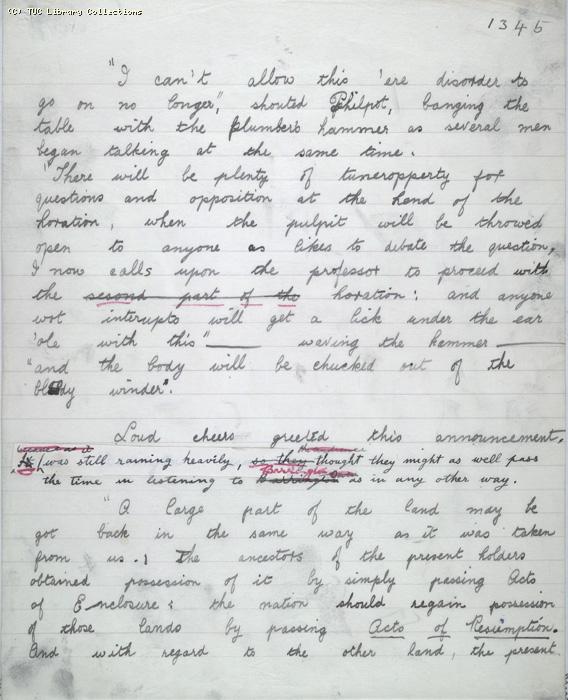 (C) TUC Library Collections
1345
"I can't allow this 'ere disorder to
go on no longer", shouted Philpot, banging the
table with the Plumber's hammer as several men
began talking at the same time.
"There will be plenty of tuneropperty for
questions and opposition at the hend of the
horation, when the pulpit will be throwed
open to anyone as likes to debate the question.
I now calls upon the professor to proceed with
the second part of the horation: and anyone
wot interupts will get a lick under the ear
'ole with this" — waving the hammer —
"and the body will be chucked out of the
bloody winder".
Loud cheers greeted this announcement.
It was still raining heavily, so they thought they might as well pass
the time in listening to Barrington as in any other way.
"A large part of the land may be
got back in the same way as it was taken
from us. The ancestors of the present holders
obtained possession of it by simply passing Acts
of Enclosure: the nation should regain possession
of those lands by passing Acts of Resumption.
And with regard to the other land, the present